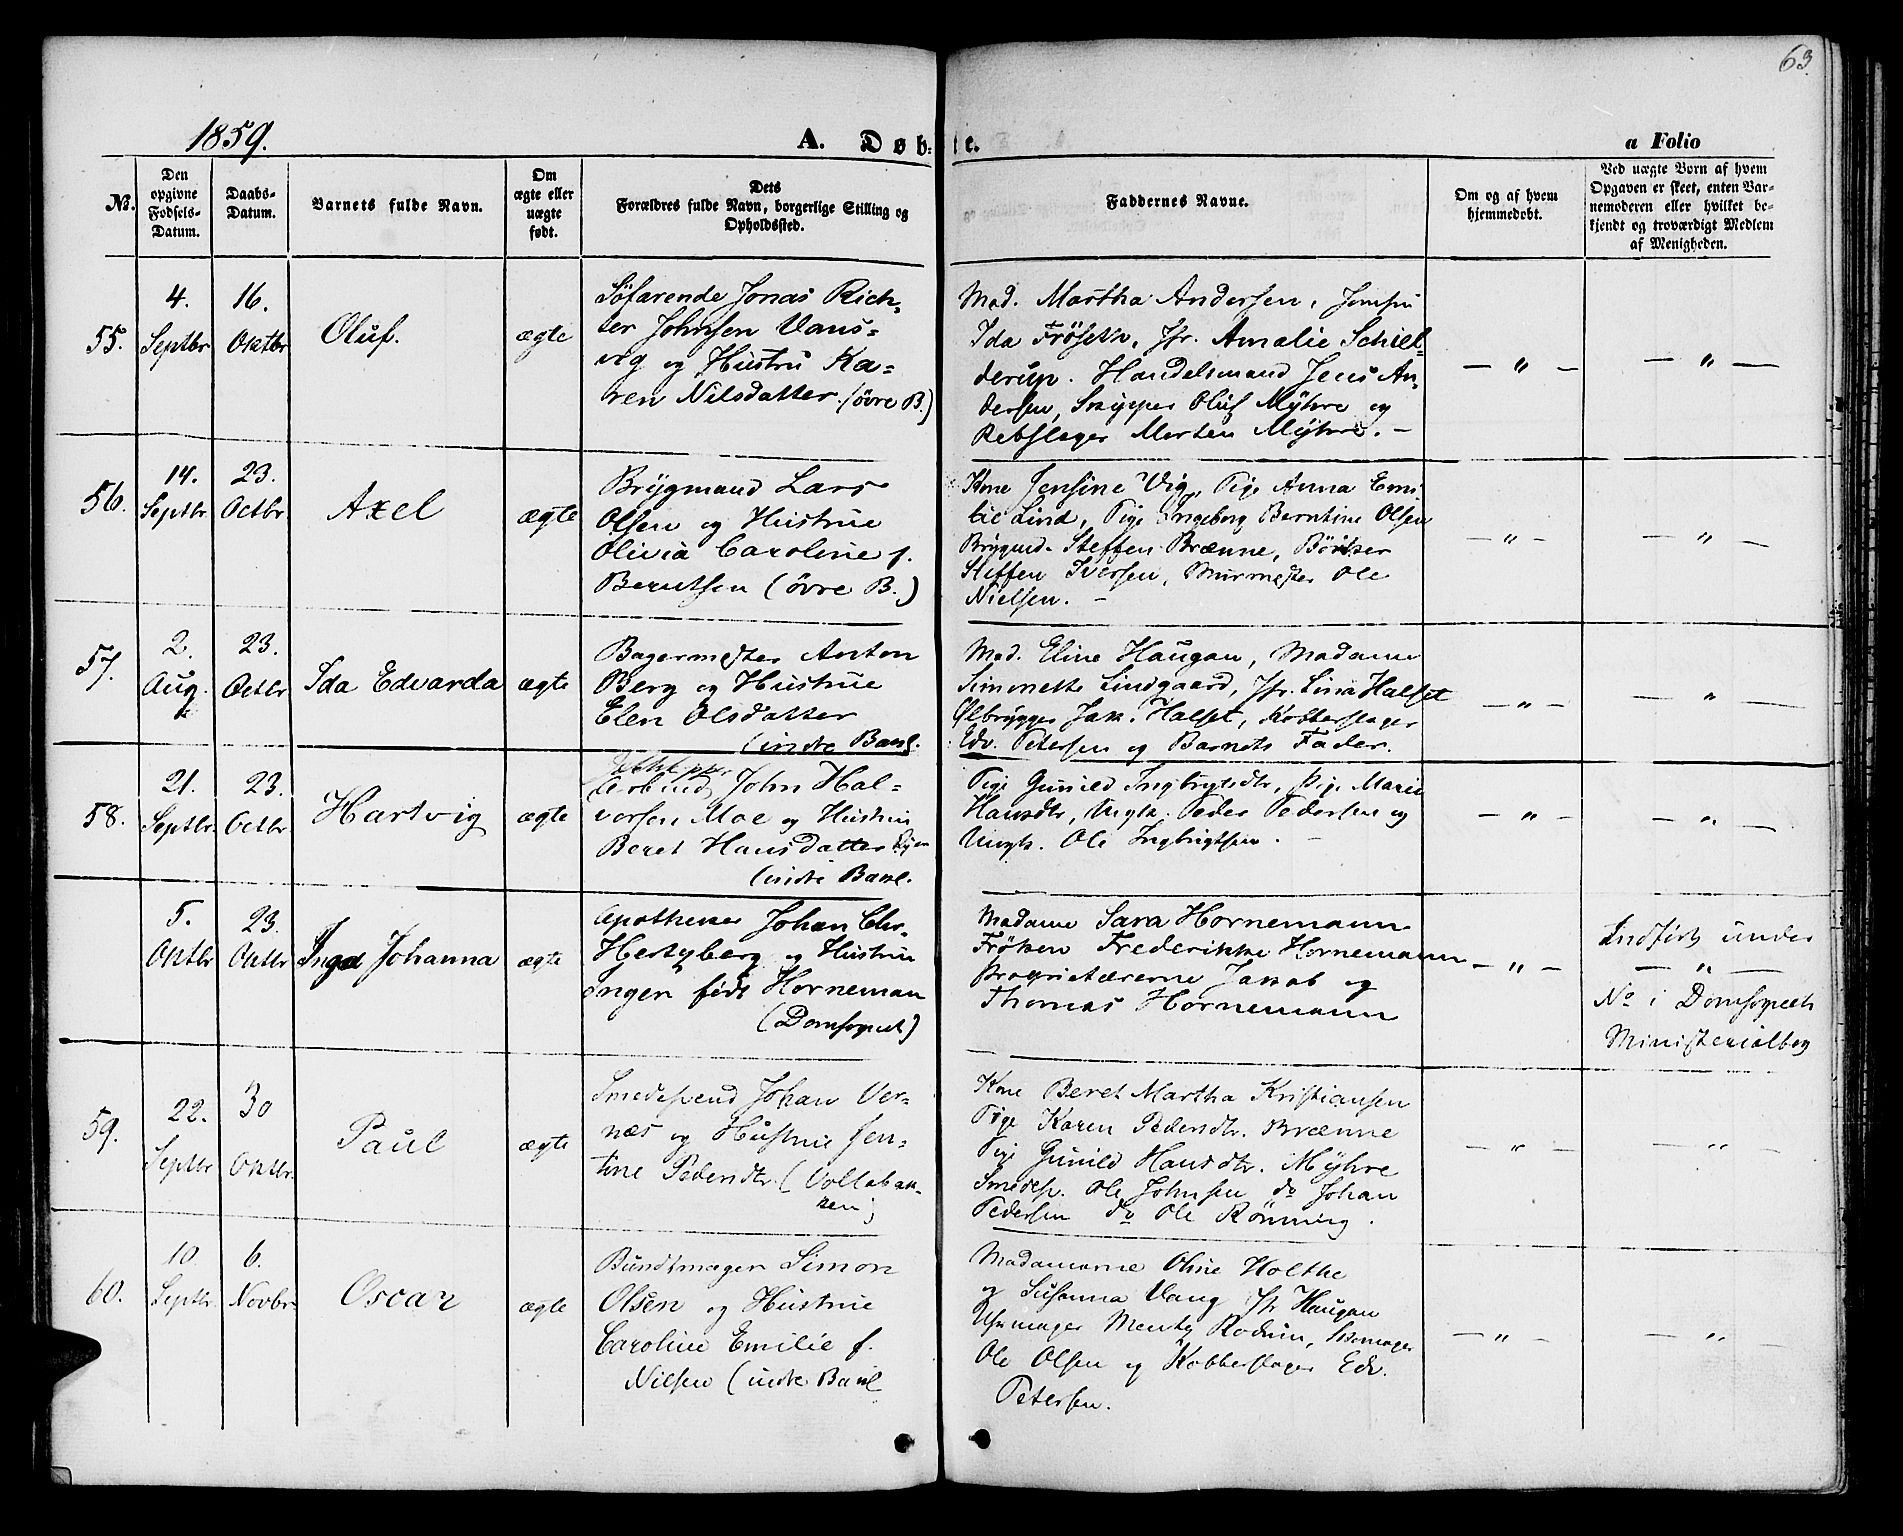 63
1859.
A. Døbte.
a Folio
No.
Den opgivne Fødsels-Datum.
Daabs-Datum.
Barnets fulde Navn.
Om ægte eller uægte født.
Dets Forældres fulde Navn, borgerlige Stilling og Opholdssted.
Faddernes Navne.
Om og af hvem hjemmedøbt.
Ved uægte Born af hvem Opgaven er skeet, enten Barnemoderen eller hvilket bekjendt og troværdigt Medlem af Menigheden.
55.
4. Septbr
16. Oktbr
Oluf.
ægte
Söfarende Jonas Rich-
ter Johnsen Vans-
vig og Hustru Ka-
ren Nilsdatter. (övre B.)
Mad. Martha Andersen, Jomfru
Ida Fröseth, Jfr. Amalie Schiel-
derup. Handelsmand Jens An-
dersen, Skipper Oluf Myhre og
Rebslager Morten Myhre. –
— " —
— " —
56.
14. Septbr.
23. Octbr.
Axel
ægte
Brygmand Lars
Olsen og Hustrue
Olivia Caroline f.
Berntsen (övre B.)
Kone Jensine Vig, Pige Anna Emi-
lie Lind, Pige Ingeborg Berntine Olsen
Brygmd. Steffen Brænne, Bödker
Steffen Iversen, Murmester Ole
Nielsen. –
— " —
— " —
57.
2. Aug.
23. Octbr
Ida Edvarda
ægte
Bagermester Anton
Berg og Hustrue
Elen Olsdatter
(indre Bakl.
Mad. Eline Haugan, Madame
Simonette Lindgaard, Jfr. Lina Halset
Ølbrygger Jak. Halset, Kobberslager
Edv. Petersen og Barnets Fader.
— " —
— " —
58.
21. Septbr.
23. Octbr
Hartvig
ægte
John Hal-
vorsen Moe og Hustrue
Beret Hansdatter
(indre Bakl.
Pige Gunild Ingbrigtsdtr, Pige Marie
Hansdtr, Ungk. Peder Pedersen og
Ungk. Ole Ingbrigtsen. –
— " —
— " —
5. Oktbr
23. Oktbr
Inga Johanna
ægte
Apotheker Johan Chr.
Hertzberg og Hustrue
Inger født Horneman
(Domsognet)
Madame Sara Hornemann
Fröken Frederikke Hornemann
Proprietærerne Jakob og
Thomas Hornemann
— " —
Indført under
— " —
No i Domsognets
Ministerialbog
59.
22. Septbr
30 Oktbr.
Paul
ægte
Smedesvend Johan Ver-
næs og Hustrue Jen-
tine Pedersdtr. (Vollabak-
ken)
Kone Beret Martha Kristiansen
Pige Karen Pedersdtr. Brænne
Pige Gunild Hansdtr. Myhre
Smedesv. Ole Johnsen do Johan
Pedersen do Ole Rönning.
— " —
— " —
60.
10. Septbr.
6. Novbr.
Oscar
ægte
Bundtmager Simon
Olsen og Hustrue
Caroline Emilie f.
Nilsen (indre Bakl
Madamerne Oline Holthe
og Susanna Vang Jfr Haugan
Uhrmager Mentz Rodun, Skomager
Ole Olsen og Kobberslager Edv.
Petersen.
— " —
— " —